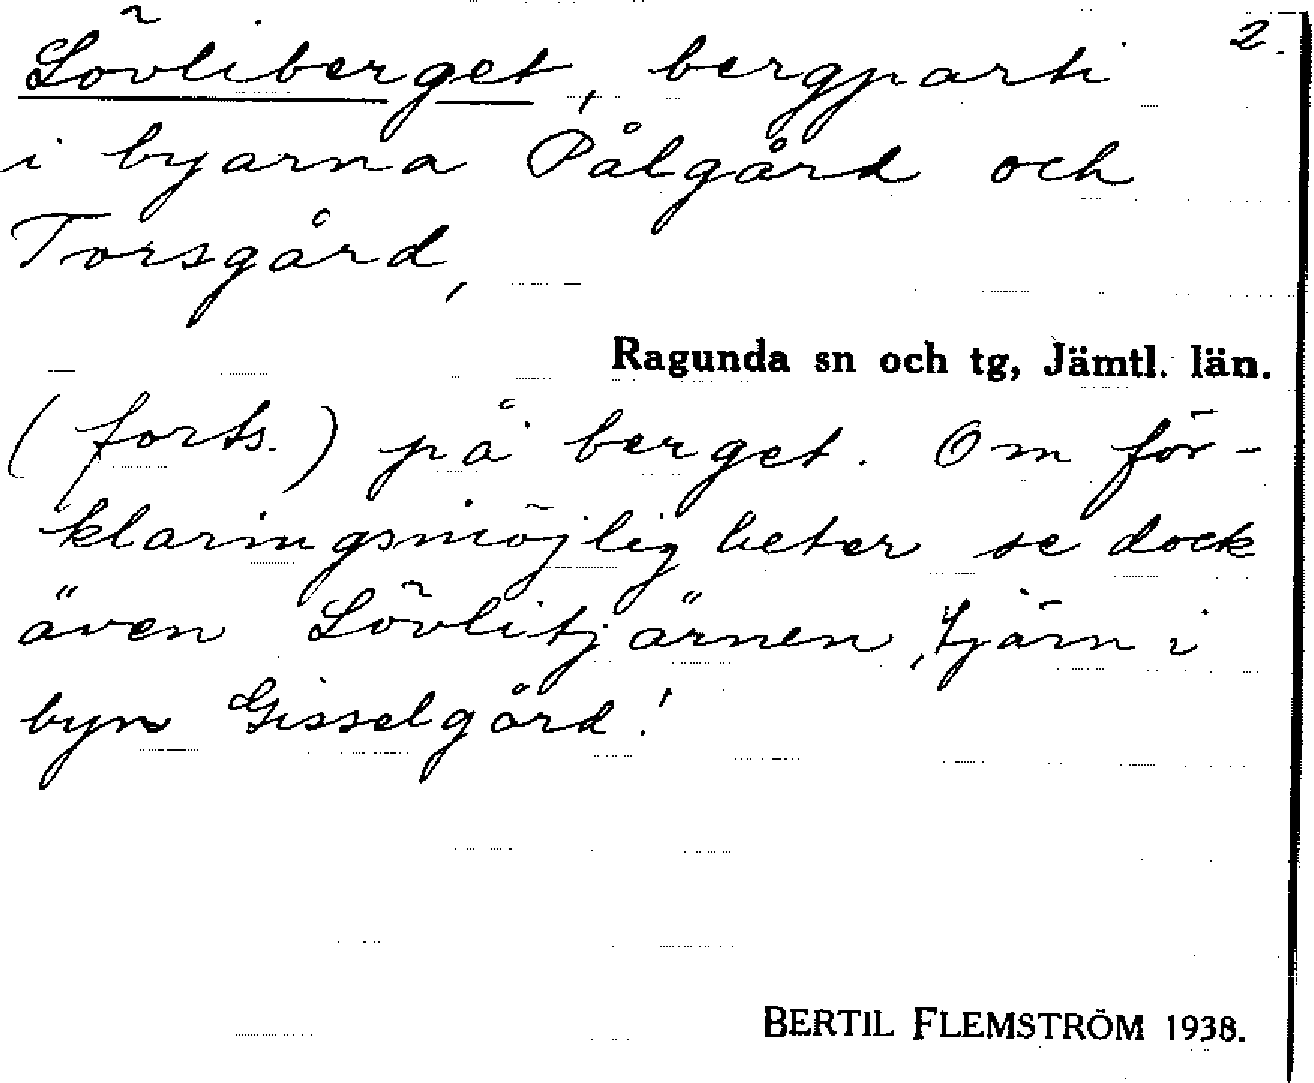 2.
Lövliberget, bergparti
i byarna Pålgård och
Torsgård,
Ragunda sn och tg, Jämtl. län.
(forts.) på berget. Om för-
klaringsmöjligheter se dock
även Lövlitjärnen, tjärn i
byn Gisselgård!
BERTIL FLEMSTRÖM 1938.